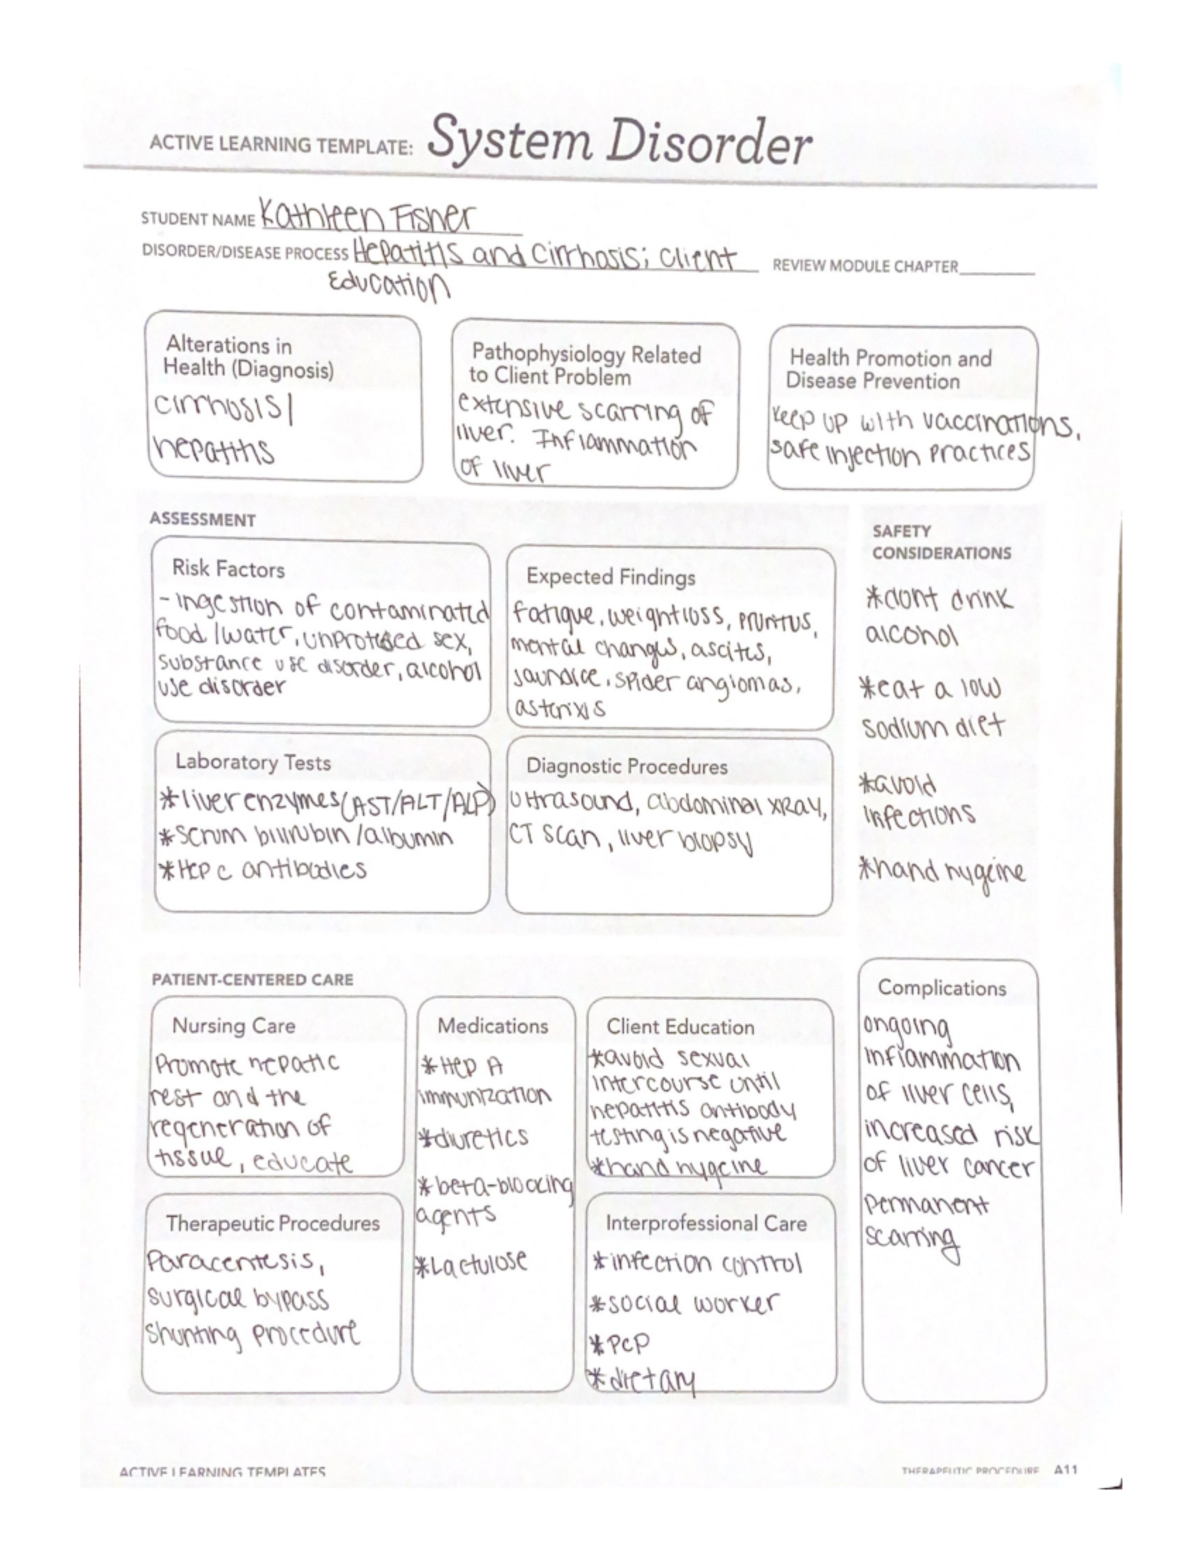 ACTIVE LEARNING TEMPLATE: System Disorder
STUDENT NAME Kathleen Fisher
DISORDER/DISEASE PROCESS Hepatitis and Cirrhosis; Client
Education
REVIEW MODULE CHAPTER
Alterations in
Health (Diagnosis)
cirrhosis/
hepatitis
Pathophysiology Related
to Client Problem
extensive scarring of
liver. Inflammation
of liver
Health Promotion and
Disease Prevention
Keep up with vaccinations,
safe injection practices
ASSESSMENT
Risk Factors
- Ingestion of contaminated
food/water, unprotected sex,
substance use disorder, alcohol
use disorder
Expected Findings
fatigue, weight loss, pruritus,
mental changes, ascites,
jaundice, spider angiomas,
asterixis
Laboratory Tests
*liver enzymes (AST/ALT/ALP)
*serum bilirubin/albumin
*Hep c antibodies
Diagnostic Procedures
Ultrasound, abdominal xray,
CT scan, liver biopsy
SAFETY
CONSIDERATIONS
*dont drink
alcohol
*eat a low
sodium diet
*avoid
infections
*hand hygeine
PATIENT-CENTERED CARE
Nursing Care
Promote hepatic
rest and the
regeneration of
tissue, educate
Medications
*Hep A
immunization
*diuretics
*beta-blocking
agents
*Lactulose
Client Education
*avoid sexual
intercourse until
hepatitis antibody
testing is negative
*hand hygeine
Therapeutic Procedures
Paracentesis,
surgical bypass
shunting procedure
Interprofessional Care
*infection control
*social worker
*PCP
*dietary
Complications
ongoing
inflammation
of liver cells,
increased risk
of liver cancer
permanent
scarring
ACTIVE LEARNING TEMPLATES
THERAPEUTIC PROCEDURE A11